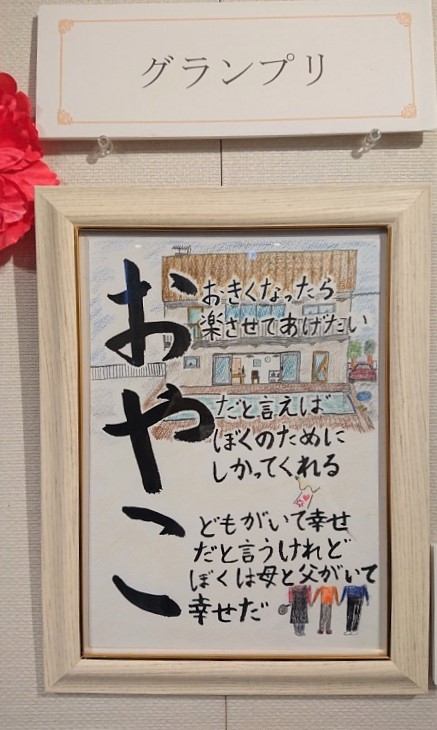 グランプリ
おやこ
おきくなったら
楽させてあげたい
だと言えば
ぼくのために
しかってくれる
どもがいて幸せ
だと言うけれど
ぼくは母と父がいて
幸せだ